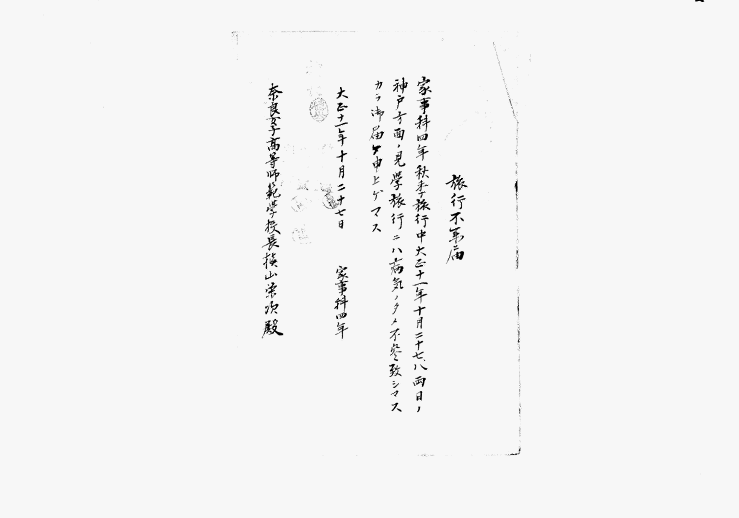 旅行不参届
家事科四年秋季旅行中大正十一年十月二十七、八両日ノ
神戸方面ノ見學旅行ニハ病気ノタメ不参致シマス
カラ御届ケ申上ゲマス
大正十一年十月二十七日
家事科四年
奈良女子高等師範学校長槙山栄次殿